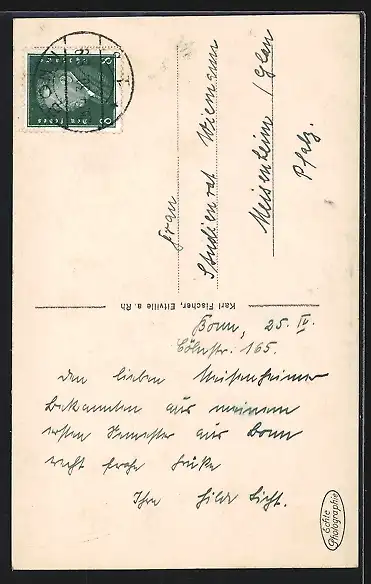 8
Deutsches
8
Frau
Studienrat Wiemann
Meisenheim / Glan
Pfalz.
Karl Fischer, Eltville a. Rh
Bonn, 25. IV.
Cölnstr. 165.
Den lieben Meisenheimer
Bekannten aus meinem
ersten Semester aus Bonn
recht frohe Grüße
Ihre Hilde Licht.
echte
Photographie